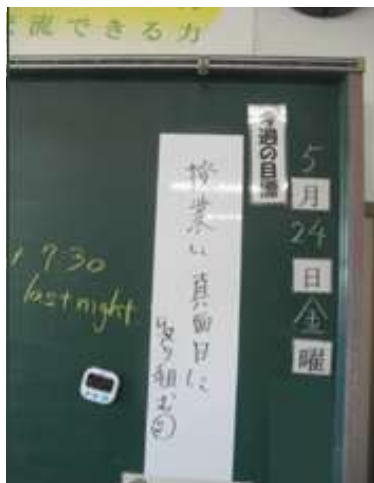 流できる力
今週の目標
5月24日金曜
授業に真面目に
取り組む②
7:30
last night.